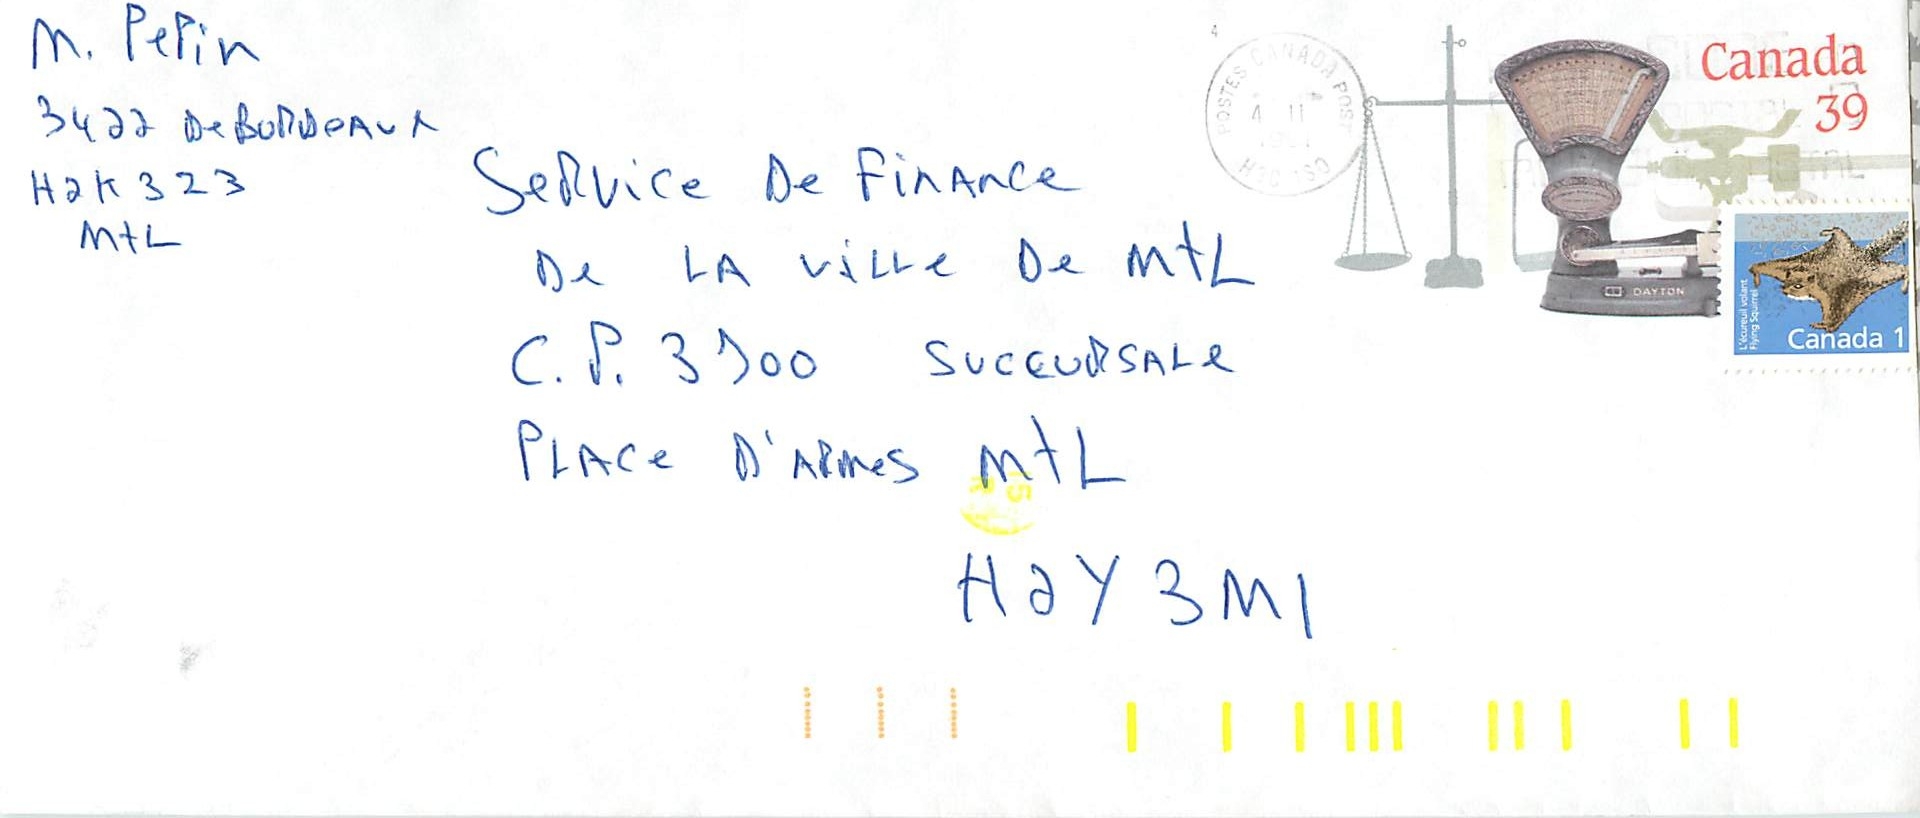 M. Pepin
3422 De BORDEAUX
H2K 3Z3
MtL
Service De Finance
De LA ville De MtL
C.P. 3500 Succursale
PLACe D'ARMes MtL
H2Y 3M1
POSTES CANADA POST
4 II
H3C 1S0
Canada
39
DAYTON
L'écureuil volant
Flying Squirrel
Canada 1